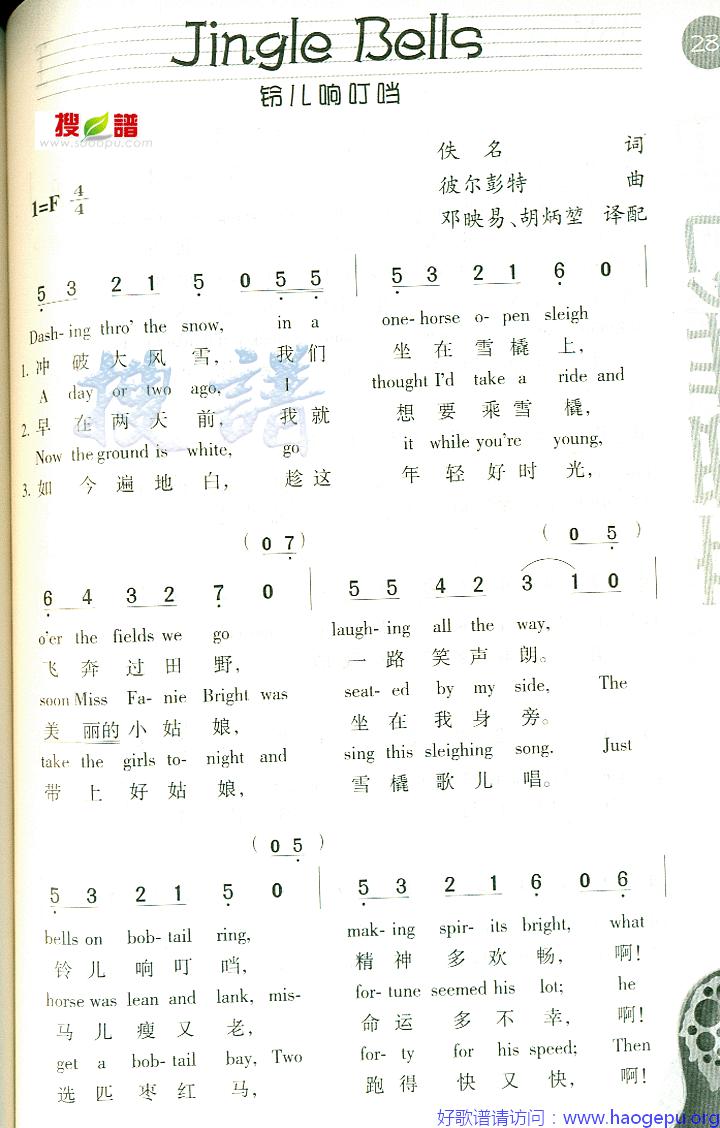 Jingle Bells
28
铃儿响叮当
搜谱
www.sooopu.com
佚名 词
彼尔彭特 曲
1=F 4/4
邓映易、胡炳堃 译配
5 3 2 1 5 0 5 5 | 5 3 2 1 6 0 |
Dash- ing thro' the snow, in a one- horse o- pen sleigh
1. 冲破大风雪, 我们 坐在雪橇上,
A day or two ago, I thought I'd take a ride and
2. 早在两天前, 我就 想要乘雪橇,
Now the ground is white, go it while you're young,
3. 如今遍地白, 趁这 年轻好时光,
(0 7) (0 5)
6 4 3 2 7 0 | 5 5 4 2 3 1 0 |
o'er the fields we go laugh- ing all the way,
飞奔过田野, 一路笑声朗。
soon Miss Fa- nie Bright was seat- ed by my side, The
美丽的小姑娘, 坐在我身旁。
take the girls to- night and sing this sleighing song. Just
带上好姑娘, 雪橇歌儿唱。
(0 5)
5 3 2 1 5 0 | 5 3 2 1 6 0 6 |
bells on bob- tail ring, mak- ing spir- its bright, what
铃儿响叮当, 精神多欢畅, 啊!
horse was lean and lank, mis- for- tune seemed his lot; he
马儿瘦又老, 命运多不幸, 啊!
get a bob- tail bay, Two for- ty for his speed; Then
选匹枣红马, 跑得快又快, 啊!
好歌谱请访问：www.haogepu.org